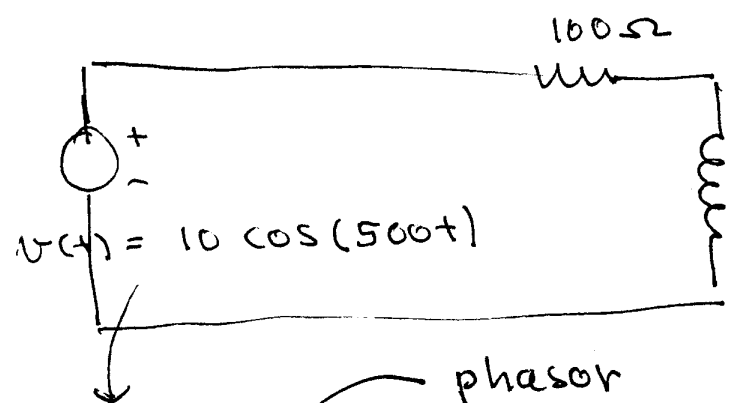 100Ω
+
-
v(t) = 10 cos(500t)
phasor